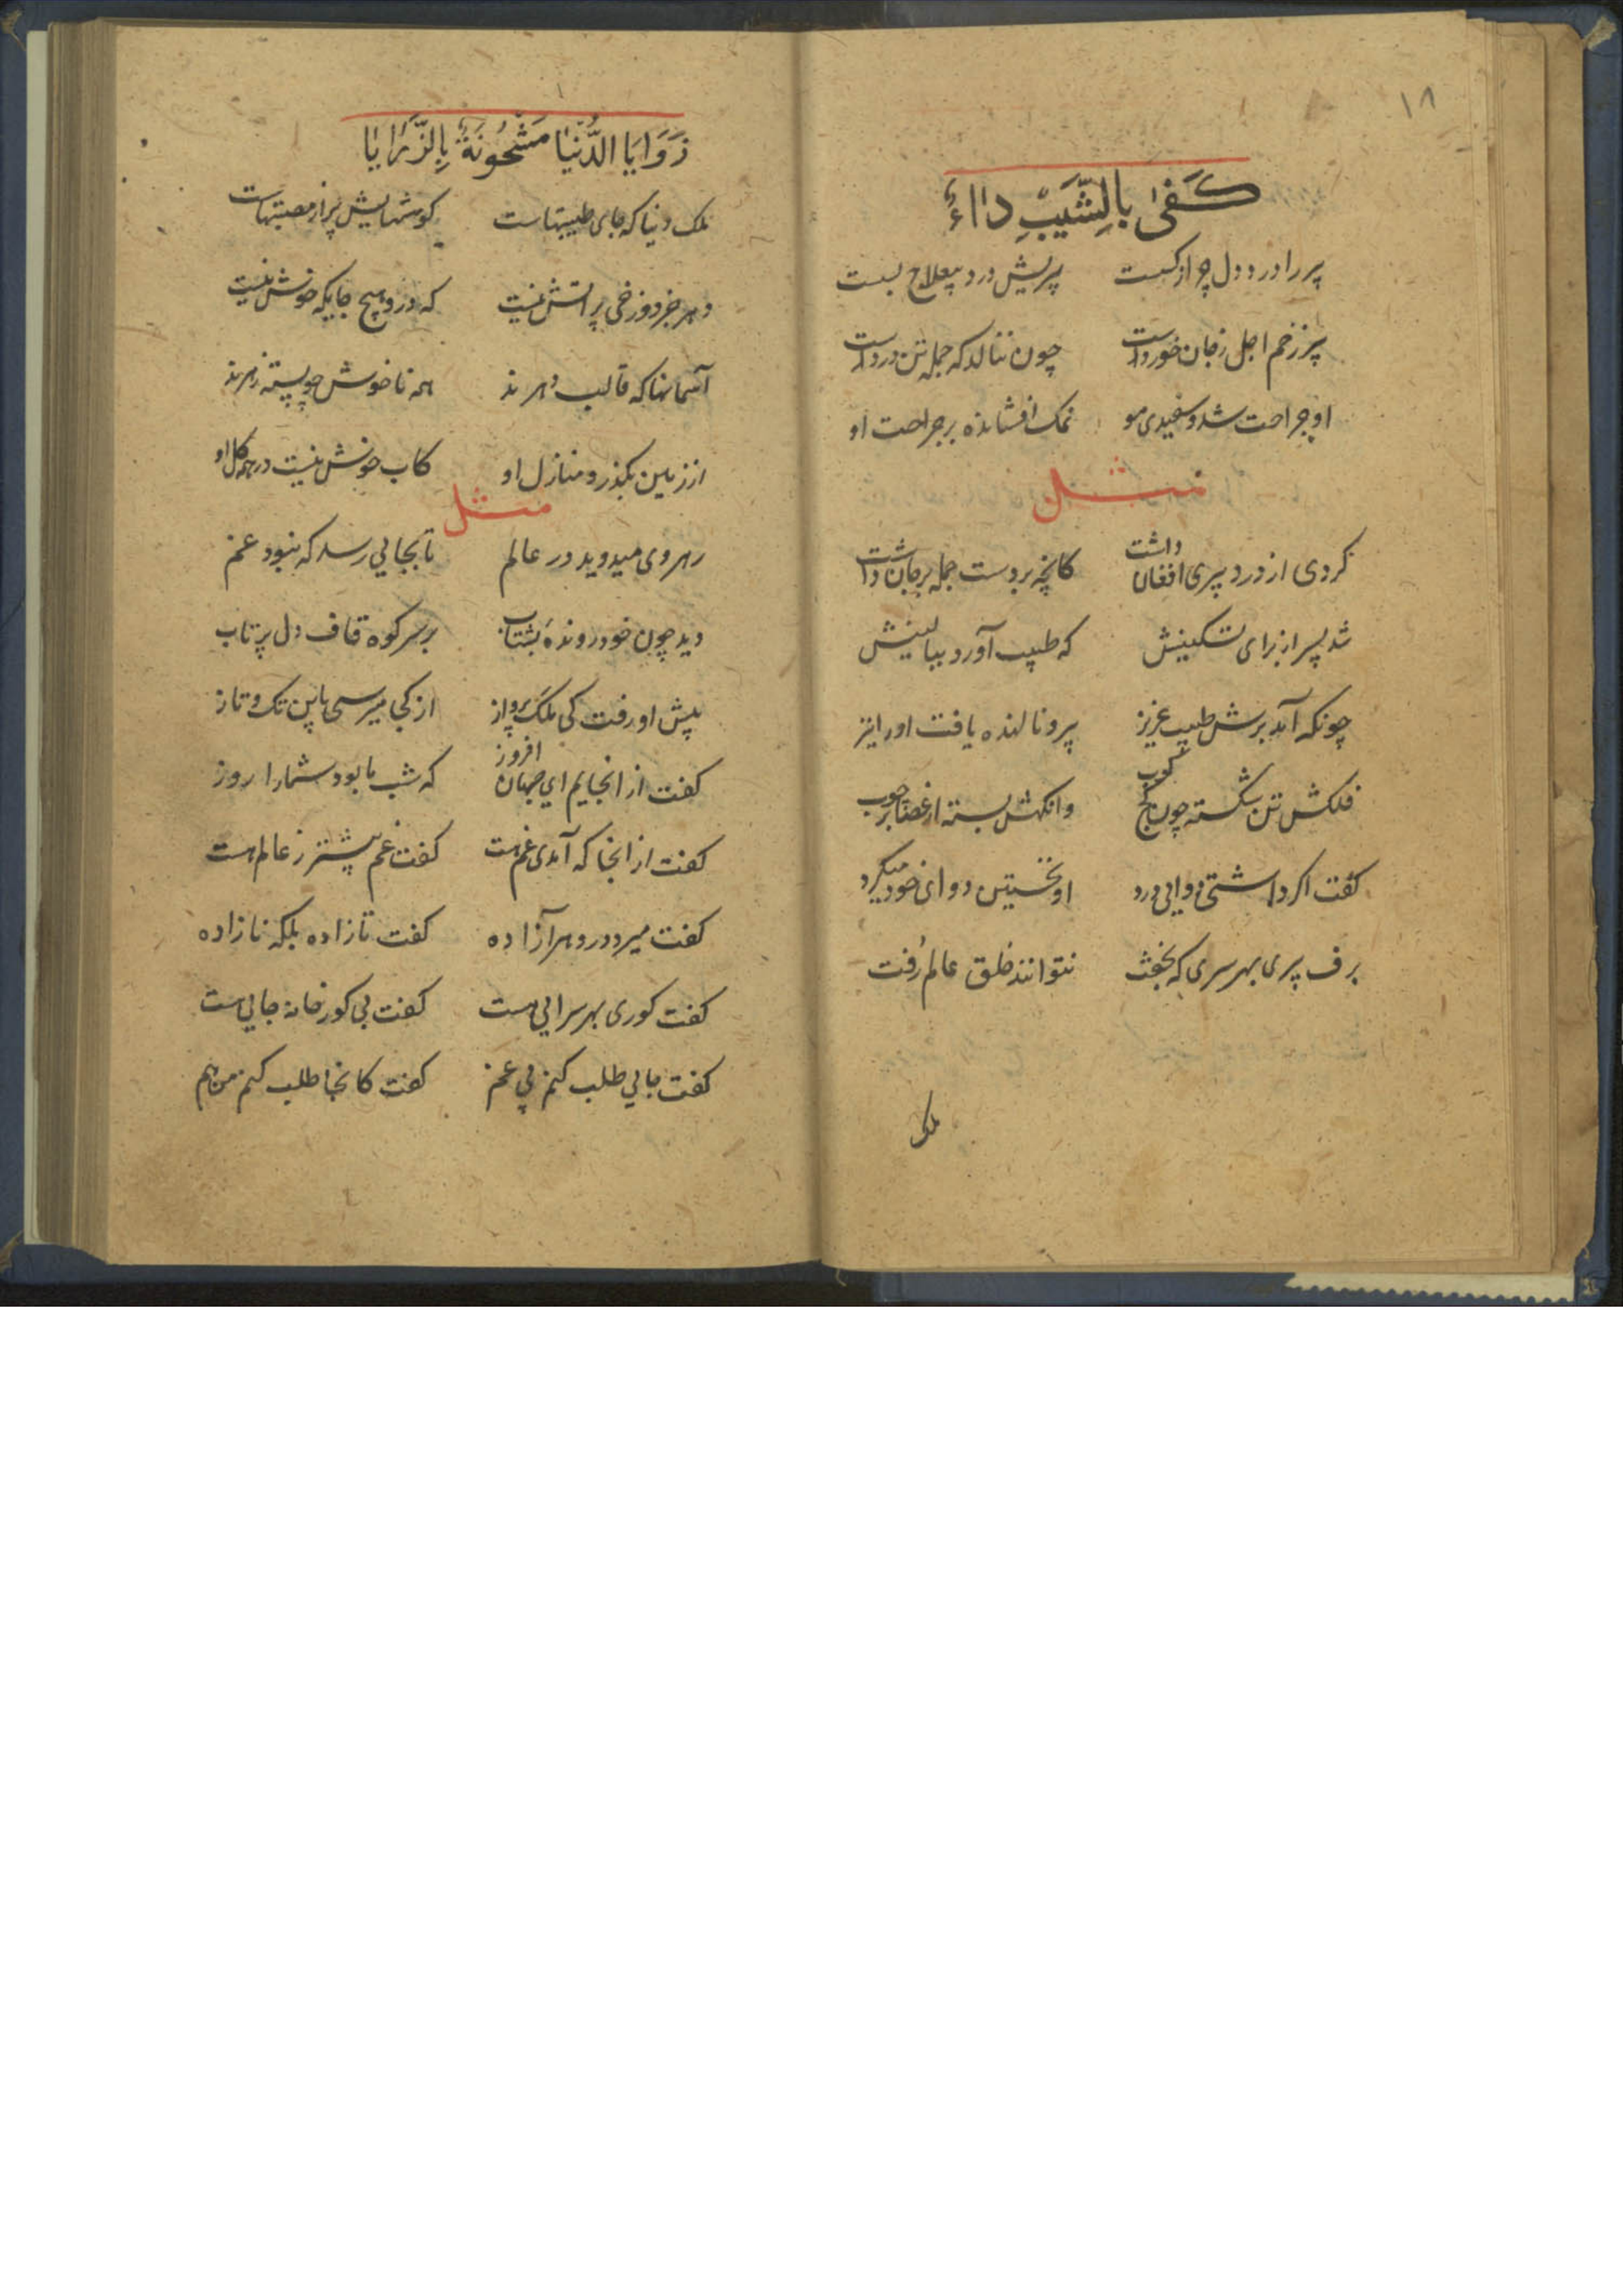 ١٨
كَفىٰ بالشَّيبِ داءً
پیر را درد دل چو از کسیت پیریش درد بیعلاج بسیت
پیر زخم اجل ز جان خورداست چون ننالد که جمله تن درداست
او جراحت شد و سفیدی مو نمک افشانده بر جراحت او
مثل
کردی از درد پیری افغان داشت کانچه بردست جمله بر جان داشت
شد پسر از برای تسکینش که طبیب آورد ببالینش
چونکه آمد برش طبیب عزیز پیر و نالنده یافت او را نیز
فلکش تن شکسته چون کوب وانکهش بسته از عصا بر چوب
کفت اکر داشتی دوایی درد او نخستین دوای خود میکرد
برف پیری بهر سری که بخفت نتوانند خلق عالم رُفت
ملک
زَوَايَا الدُّنيٰا مَشْحُونَةٌ بِالرَّزايٰا
ملک دنیا که جای طیبتهاست کوشهایش پر از مصیبتهاست
دهر جز دوزخی پر آتش نیست که درو هیچ جایکه خوش نیست
آسمانها که قالب دهرند همه ناخوش چو پسته زهرند
از زمین بکذر و منازل او کاب خوش نیست در همه کل او
مثل
رهروی میدوید در عالم تا بجایی رسد که نبود غم
دید چون خود رونده بشتاب بر سر کوه قاف دل پر تاب
پیش او رفت کی ملک پرواز از کجا میرسی باین تک و تاز
کفت از انجایم ای جهان افروز که شب ما بود شما را روز
کفت از انجا که آمدی غم هست کفت غم بیشتر ز عالم هست
کفت میرد درو هر آزاده کفت تا زاده بلکه نازاده
کفت کوری بهر سرایی هست کفت بی کور خانه جایی هست
کفت جایی طلب کنم بی غم کفت کانجا طلب کنم من هم